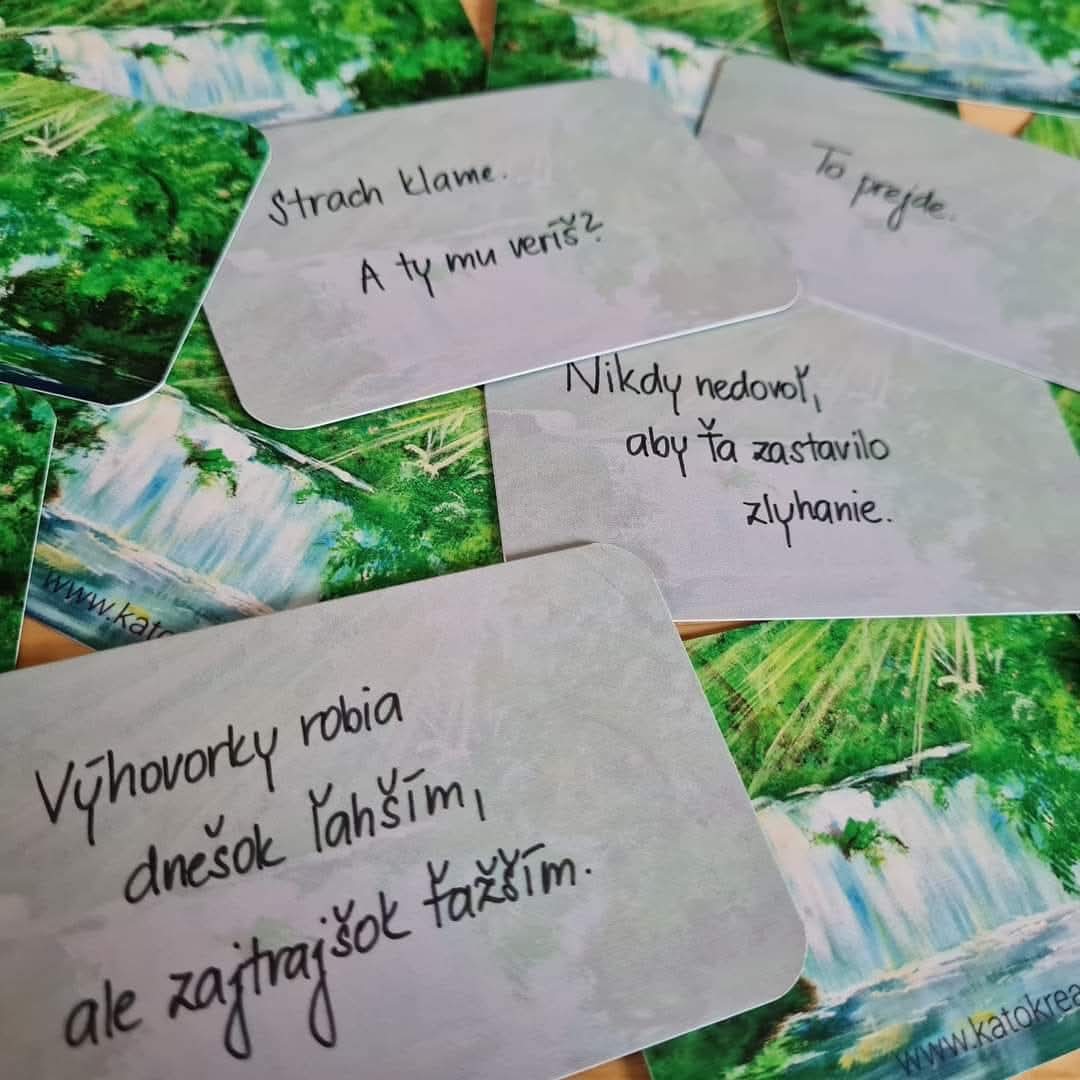 Strach klame.
A ty mu veríš?
To prejde.
Nikdy nedovoľ,
aby ťa zastavilo
zlyhanie.
Výhovorky robia
dnešok ľahším,
ale zajtrajšok ťažším.
www.kato
www.katokrea